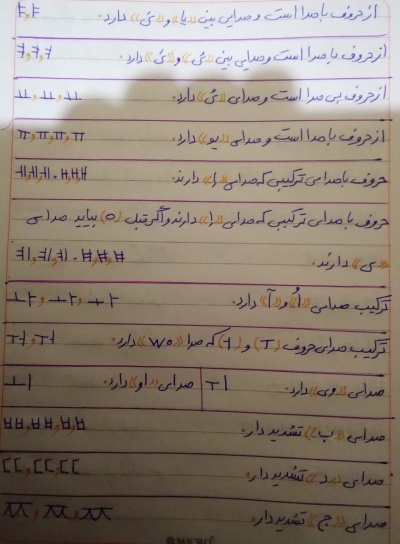 از حروف با صدا است و صدایی بین «یا» و «ئی» دارد. ㅑ و ㅑ
از حروف با صدا است و صدایی بین «ئی» و «ئی» دارد. ㅕ و ㅕ و ㅕ
از حروف بی صدا است و صدای «ئی» دارد. ㅛ و ㅛ و ㅛ
از حروف با صدا است و صدای «یو» دارد. ㅠ و ㅠ و ㅠ و ㅠ
حروف با صدای ترکیبی که صدای «اِ» دارند. ㅐ و ㅐ و ㅐ . ㅔ و ㅔ و ㅔ
حروف با صدای ترکیبی که صدای «اِ» دارند و اگر قبل (ㅇ) بیاید صدای
«ی» دارند. ㅒ و ㅒ و ㅒ . ㅖ و ㅖ و ㅖ
ترکیب صدای «اُ» و «آ» دارد. ㅘ و ㅘ و ㅘ
ترکیب صدای حروف (ㅜ) و (ㅓ) که صدا «wo» دارد. ㅝ و ㅝ
صدای «وی» دارد. ㅟ صدای «او» دارد. ㅚ
صدای «ب» تشدید دار. ㅃ و ㅃ و ㅃ و ㅃ
صدای «د» تشدید دار. ㄸ و ㄸ و ㄸ
صدای «ج» تشدید دار. ㅉ و ㅉ و ㅉ
MICRO